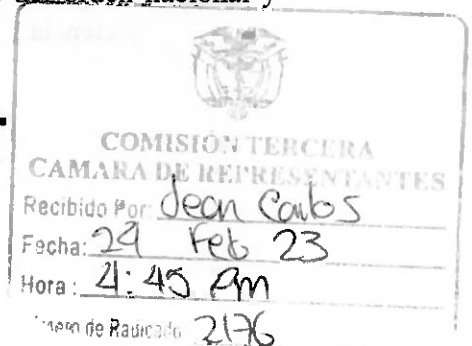 nacional y
COMISIÓN TERCERA
CAMARA DE REPRESENTANTES
Recibido Por: Jean Carlos
Fecha: 24 Feb 23
Hora: 4:45 pm
de Radicado 2176